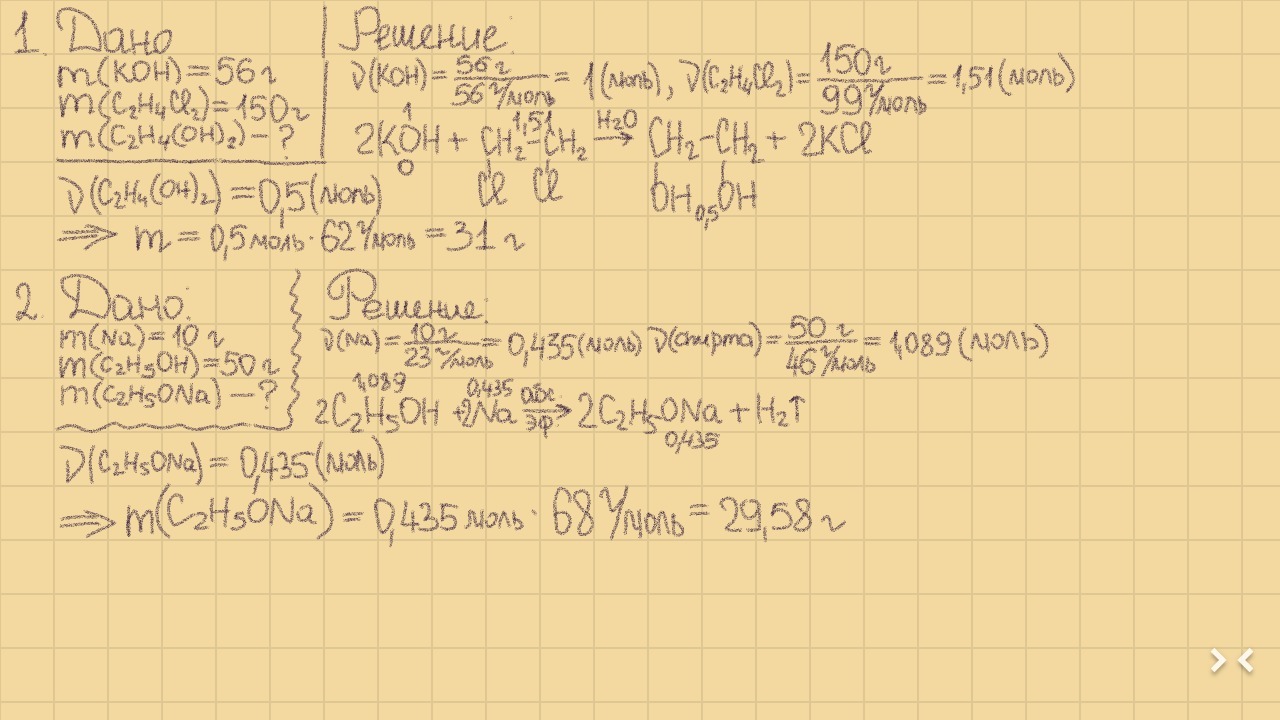 1. Дано
m(KOH) = 56 г
m(C₂H₄Cl₂) = 150 г
m(C₂H₄(OH)₂) – ?
Решение:
ν(KOH) = 56 г / 56 г/моль = 1 (моль), ν(C₂H₄Cl₂) = 150 г / 99 г/моль = 1,51 (моль)
1 1,51
2KOH + CH₂-CH₂ H₂O → CH₂-CH₂ + 2KCl
0 Cl Cl OH 0,5 OH
ν(C₂H₄(OH)₂) = 0,5 (моль)
⟹ m = 0,5 моль · 62 г/моль = 31 г
2. Дано:
m(Na) = 10 г
m(C₂H₅OH) = 50 г
m(C₂H₅ONa) – ?
Решение:
ν(Na) = 10 г / 23 г/моль = 0,435 (моль) ν(спирта) = 50 г / 46 г/моль = 1,089 (моль)
1,089 0,435
2C₂H₅OH + 2Na абс. эф. → 2C₂H₅ONa + H₂↑
0,435
ν(C₂H₅ONa) = 0,435 (моль)
⟹ m(C₂H₅ONa) = 0,435 моль · 68 г/моль = 29,58 г